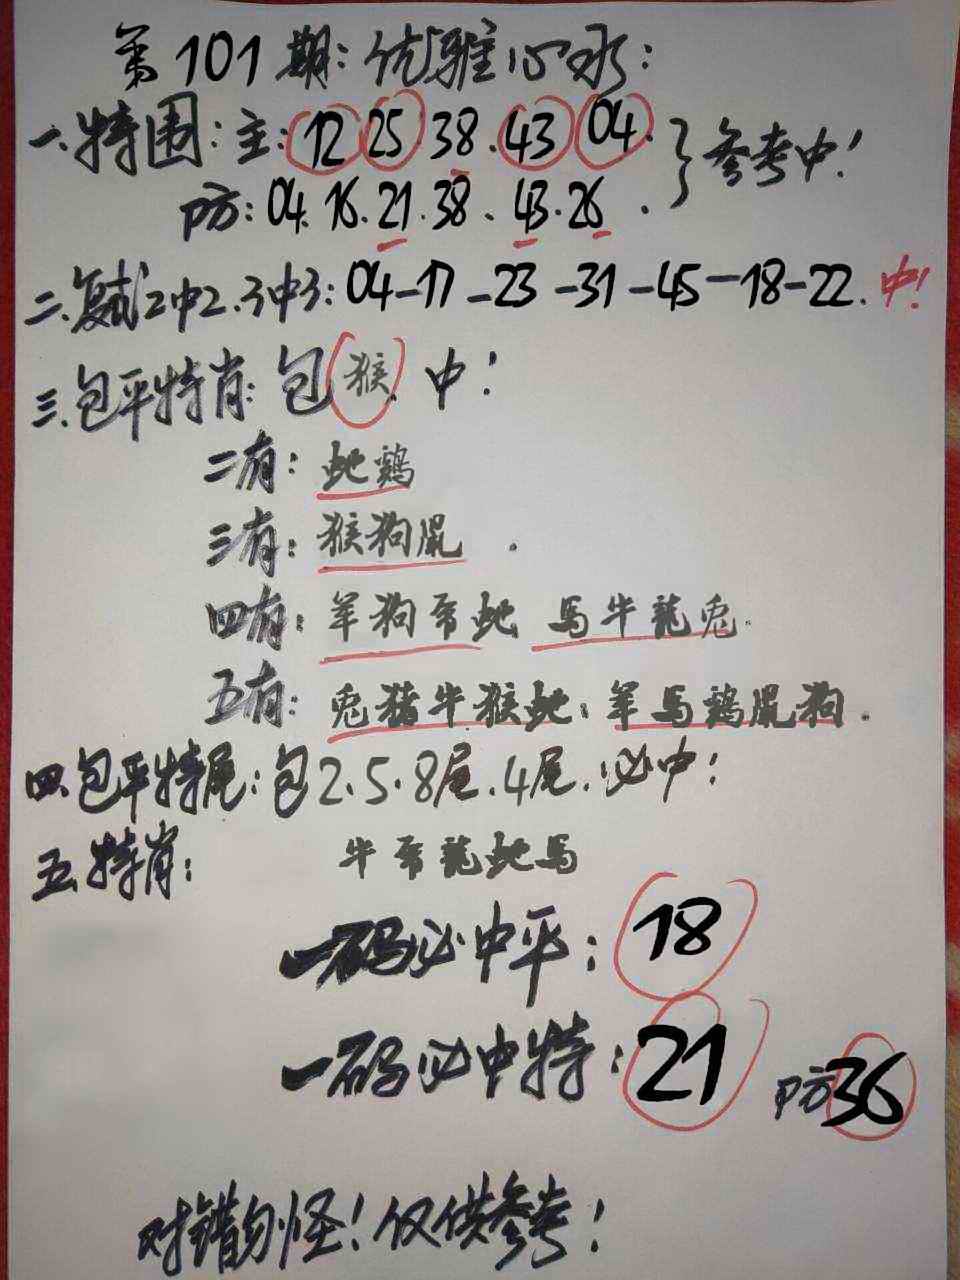 第101期:优雅心水:
一.特围:主:12 25.38.43 04.}参考中!
防:04.16.21.38.43.26.
二.复试2中2.3中3:04-17-23-31-45-18-22.中!
三.包平特肖:包猴.中!
二有:蛇鷄
三有:猴狗鼠.
四有:羊狗帍蛇 馬牛龍兎.
五有:兎猪牛猴蛇:羊马鷄鼠狗.
四.包平特尾:包2.5.8尾.4尾.必中!
五.特肖: 牛帍龍蛇馬
一码必中平:18
一码必中特:21 防36
对错勿怪!仅供参考!